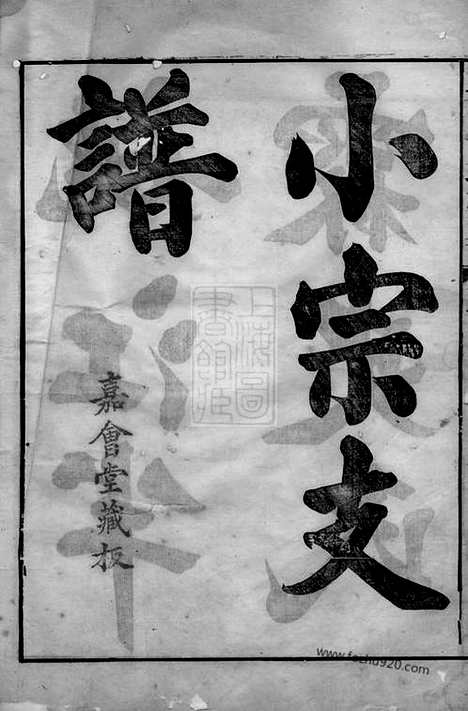 小宗支
譜
嘉會堂藏板
上海圖
書館藏
www.fozhu920.com